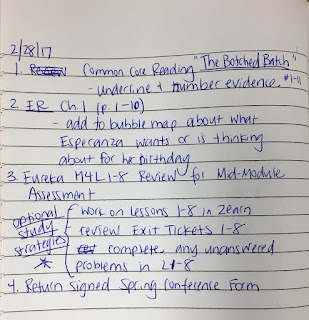 2/28/17
1. Common Core Reading "The Botched Batch"
- underline + number evidence. #1-11
2. ER Ch. 1 (p. 1-10)
- add to bubble map about what
Esperanza wants or is thinking
about for her birthday
3. Eureka M4L1-8 Review for Mid-Module
Assessment
optional study strategies *
work on lessons 1-8 in Zearn
review Exit Tickets 1-8
complete any unanswered
problems in L1-8
4. Return Signed Spring Conference Form